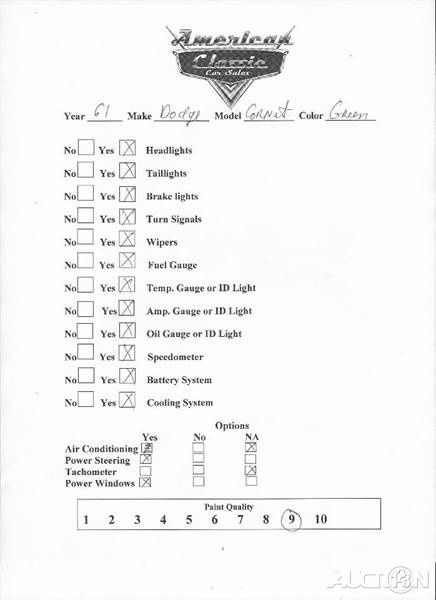 American
Classic
Car Sales
Year 61 Make Dodge Model Cornet Color Green
No Yes X Headlights
No Yes X Taillights
No Yes X Brake lights
No Yes X Turn Signals
No Yes X Wipers
No Yes X Fuel Gauge
No Yes X Temp. Gauge or ID Light
No Yes X Amp. Gauge or ID Light
No Yes X Oil Gauge or ID Light
No Yes X Speedometer
No Yes X Battery System
No Yes X Cooling System
Options
Yes No NA
Air Conditioning X
Power Steering X
Tachometer X
Power Windows X
Paint Quality
1 2 3 4 5 6 7 8 9 10
AUCTION 13